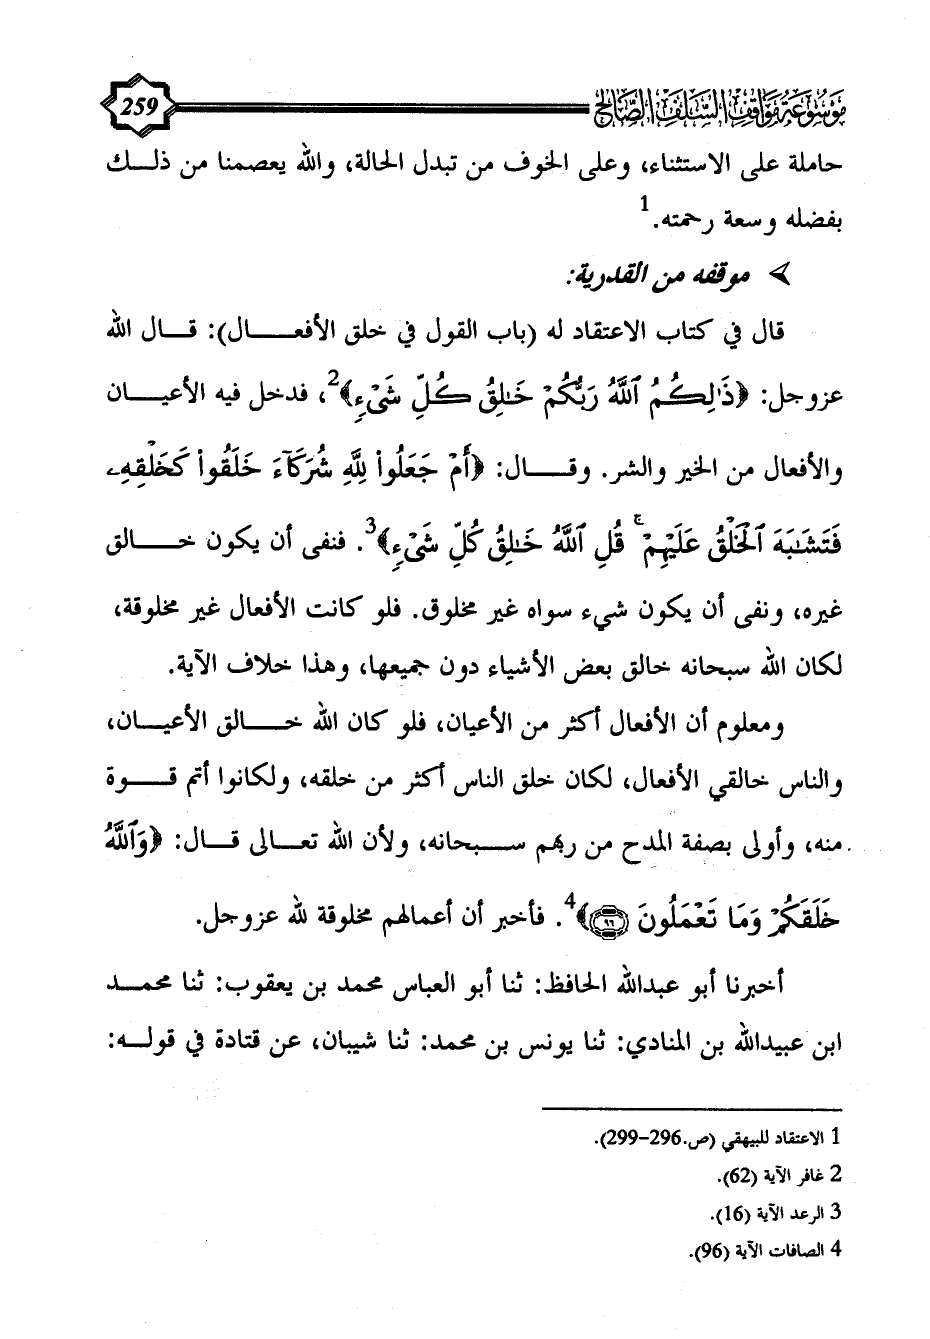 موسوعة مواقف السلف الصالح
259
حاملة على الاستثناء، وعلى الخوف من تبدل الحالة، والله يعصمنا من ذلك
بفضله وسعة رحمته.1
موقفه من القدرية:
قال في كتاب الاعتقاد له (باب القول في خلق الأفعال): قال الله
عزوجل: ﴿ذَٰلِكُمُ ٱللَّهُ رَبُّكُمْ خَٰلِقُ كُلِّ شَيْءٍ﴾2، فدخل فيه الأعيان
والأفعال من الخير والشر. وقال: ﴿أَمْ جَعَلُوا۟ لِلَّهِ شُرَكَآءَ خَلَقُوا۟ كَخَلْقِهِۦ
فَتَشَٰبَهَ ٱلْخَلْقُ عَلَيْهِمْ ۚ قُلِ ٱللَّهُ خَٰلِقُ كُلِّ شَيْءٍ﴾3. فنفى أن يكون خالق
غيره، ونفى أن يكون شيء سواه غير مخلوق. فلو كانت الأفعال غير مخلوقة،
لكان الله سبحانه خالق بعض الأشياء دون جميعها، وهذا خلاف الآية.
ومعلوم أن الأفعال أكثر من الأعيان، فلو كان الله خالق الأعيان،
والناس خالقي الأفعال، لكان خلق الناس أكثر من خلقه، ولكانوا أتم قوة
منه، وأولى بصفة المدح من ربهم سبحانه، ولأن الله تعالى قال: ﴿وَٱللَّهُ
خَلَقَكُمْ وَمَا تَعْمَلُونَ ٩٦﴾4. فأخبر أن أعمالهم مخلوقة لله عزوجل.
أخبرنا أبو عبدالله الحافظ: ثنا أبو العباس محمد بن يعقوب: ثنا محمد
ابن عبيدالله بن المنادي: ثنا يونس بن محمد: ثنا شيبان، عن قتادة في قوله:
1 الاعتقاد للبيهقي (ص.296-299).
2 غافر الآية (62).
3 الرعد الآية (16).
4 الصافات الآية (96).